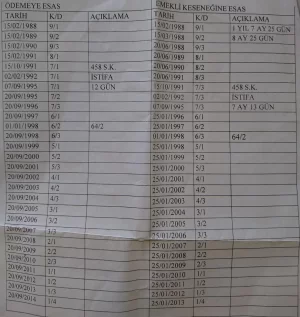 ÖDEMEYE ESAS EMEKLİ KESENEĞİNE ESAS
TARİH K/D AÇIKLAMA TARİH K/D AÇIKLAMA
15/02/1988 9/1 15/02/1988 9/1 1 YIL 7 AY 25 GÜN
15/02/1989 9/2 15/03/1988 9/2 8 AY 25 GÜN
15/02/1990 9/3 20/06/1988 9/3
15/02/1991 8/1 20/06/1989 8/1
15/10/1991 7/1 458 S.K. 20/06/1990 8/2
02/02/1992 7/1 İSTİFA 20/06/1991 8/3
07/09/1995 7/1 12 GÜN 15/10/1991 7/3 458 S.K.
20/09/1995 7/2 02/02/1992 7/3 İSTİFA
20/09/1996 7/3 07/09/1995 7/3 7 AY 13 GÜN
20/09/1997 6/1 25/01/1996 6/1
01/01/1998 6/2 64/2 25/01/1997 6/2
20/09/1998 6/3 01/01/1998 6/3 64/2
20/09/1999 5/1 25/01/1998 5/1
20/09/2000 5/2 25/01/1999 5/2
20/09/2001 5/3 25/01/2000 5/3
20/09/2002 4/1 25/01/2001 4/1
20/09/2003 4/2 25/01/2002 4/2
20/09/2004 4/3 25/01/2003 4/3
20/09/2005 3/1 25/01/2004 3/1
20/09/2006 3/2 25/01/2005 3/2
20/09/2007 3/3 25/01/2006 3/3
20/09/2008 2/1 25/01/2007 2/1
20/09/2009 2/2 25/01/2008 2/2
20/09/2010 2/3 25/01/2009 2/3
20/09/2011 1/1 25/01/2010 1/1
20/09/2012 1/2 25/01/2011 1/2
20/09/2013 1/3 25/01/2012 1/3
20/09/2014 1/4 25/01/2013 1/4